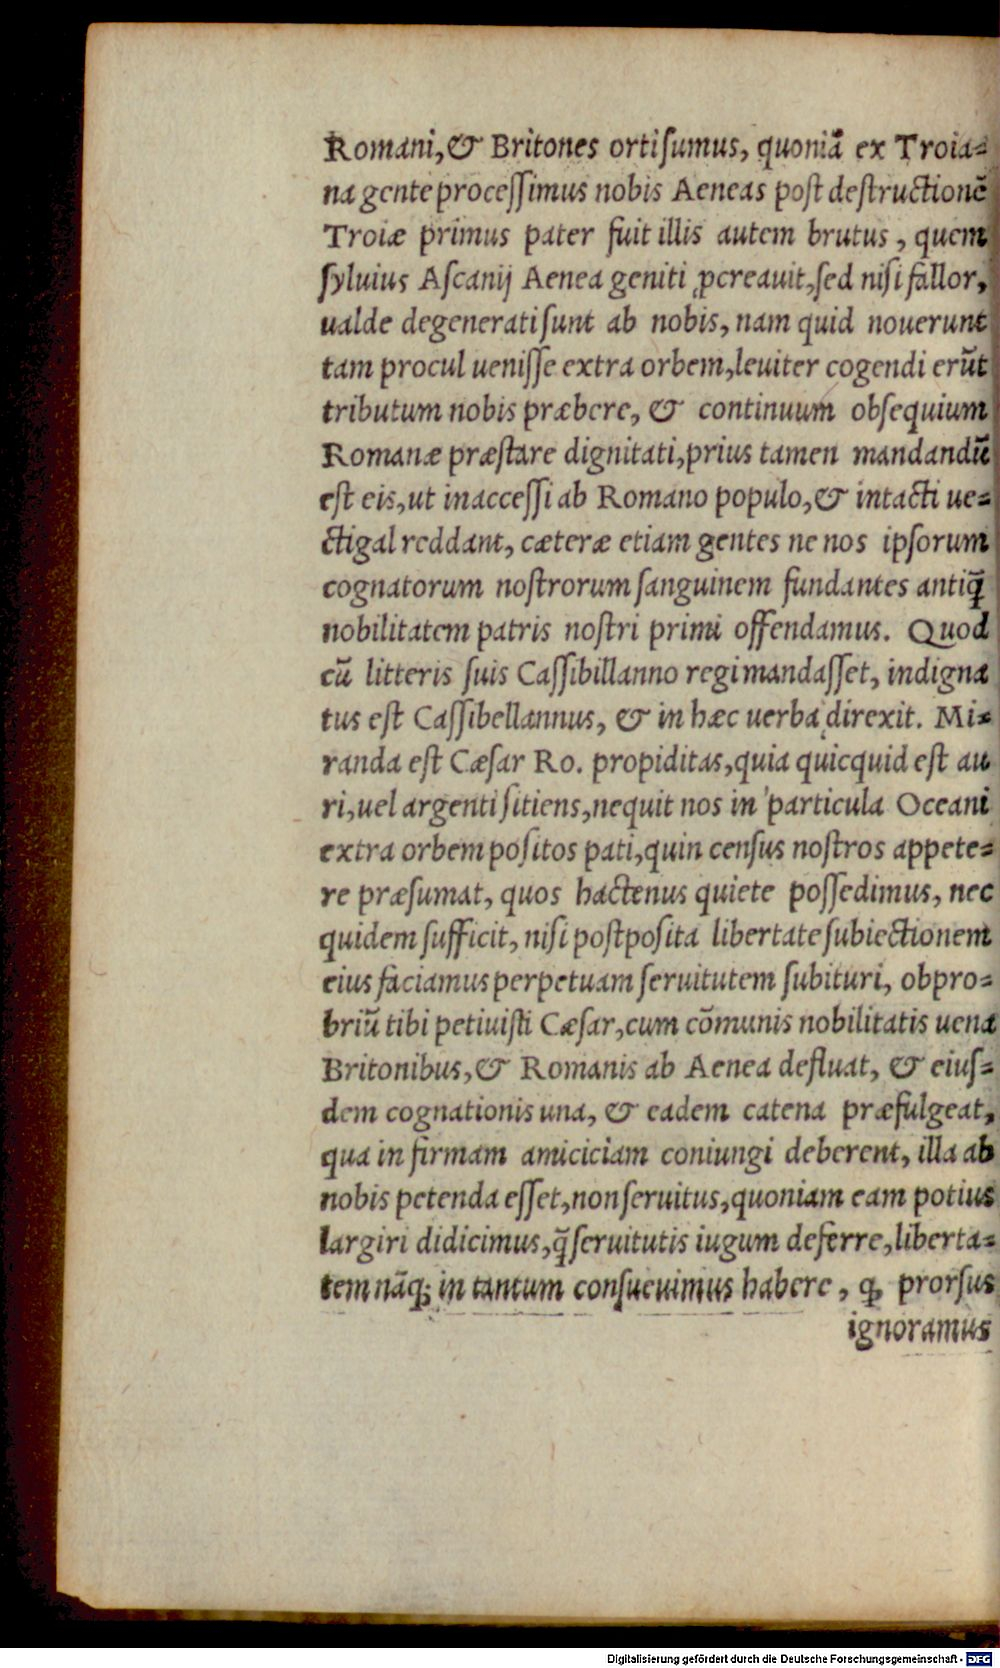 Romani, & Britones orti sumus, quoniā ex Troia=
na gente processimus nobis Aeneas post destructionē
Troiæ primus pater fuit illis autem brutus, quem
syluius Ascanij Aenea geniti ꝓcreauit, sed nisi fallor,
ualde degenerati sunt ab nobis, nam quid nouerunt
tam procul uenisse extra orbem, leuiter cogendi erūt
tributum nobis præbere, & continuum obsequium
Romanæ præstare dignitati, prius tamen mandandū
est eis, ut inaccessi ab Romano populo, & intacti ue=
ctigal reddant, cæteræ etiam gentes ne nos ipsorum
cognatorum nostrorum sanguinem fundantes antiq̄
nobilitatem patris nostri primi offendamus. Quod
cū litteris suis Cassibillanno regi mandasset, indigna
tus est Cassibellannus, & in hæc uerba direxit. Mi=
randa est Cæsar Ro. propiditas, quia quicquid est au
ri, uel argenti sitiens, nequit nos in particula Oceani
extra orbem positos pati, quin census nostros appete=
re præsumat, quos hactenus quiete possedimus, nec
quidem sufficit, nisi postposita libertate subiectionem
eius faciamus perpetuam seruitutem subituri, obpro=
briū tibi petiuisti Cæsar, cum cōmunis nobilitatis uena
Britonibus, & Romanis ab Aenea defluat, & eius=
dem cognationis una, & eadem catena præfulgeat,
qua in firmam amiciciam coniungi deberent, illa ab
nobis petenda esset, non seruitus, quoniam eam potius
largiri didicimus, q̄ seruitutis iugum deferre, liberta=
tem nāq; in tantum consueuimus habere, ꝙ prorsus
ignoramus
Digitalisierung gefördert durch die Deutsche Forschungsgemeinschaft - DFG